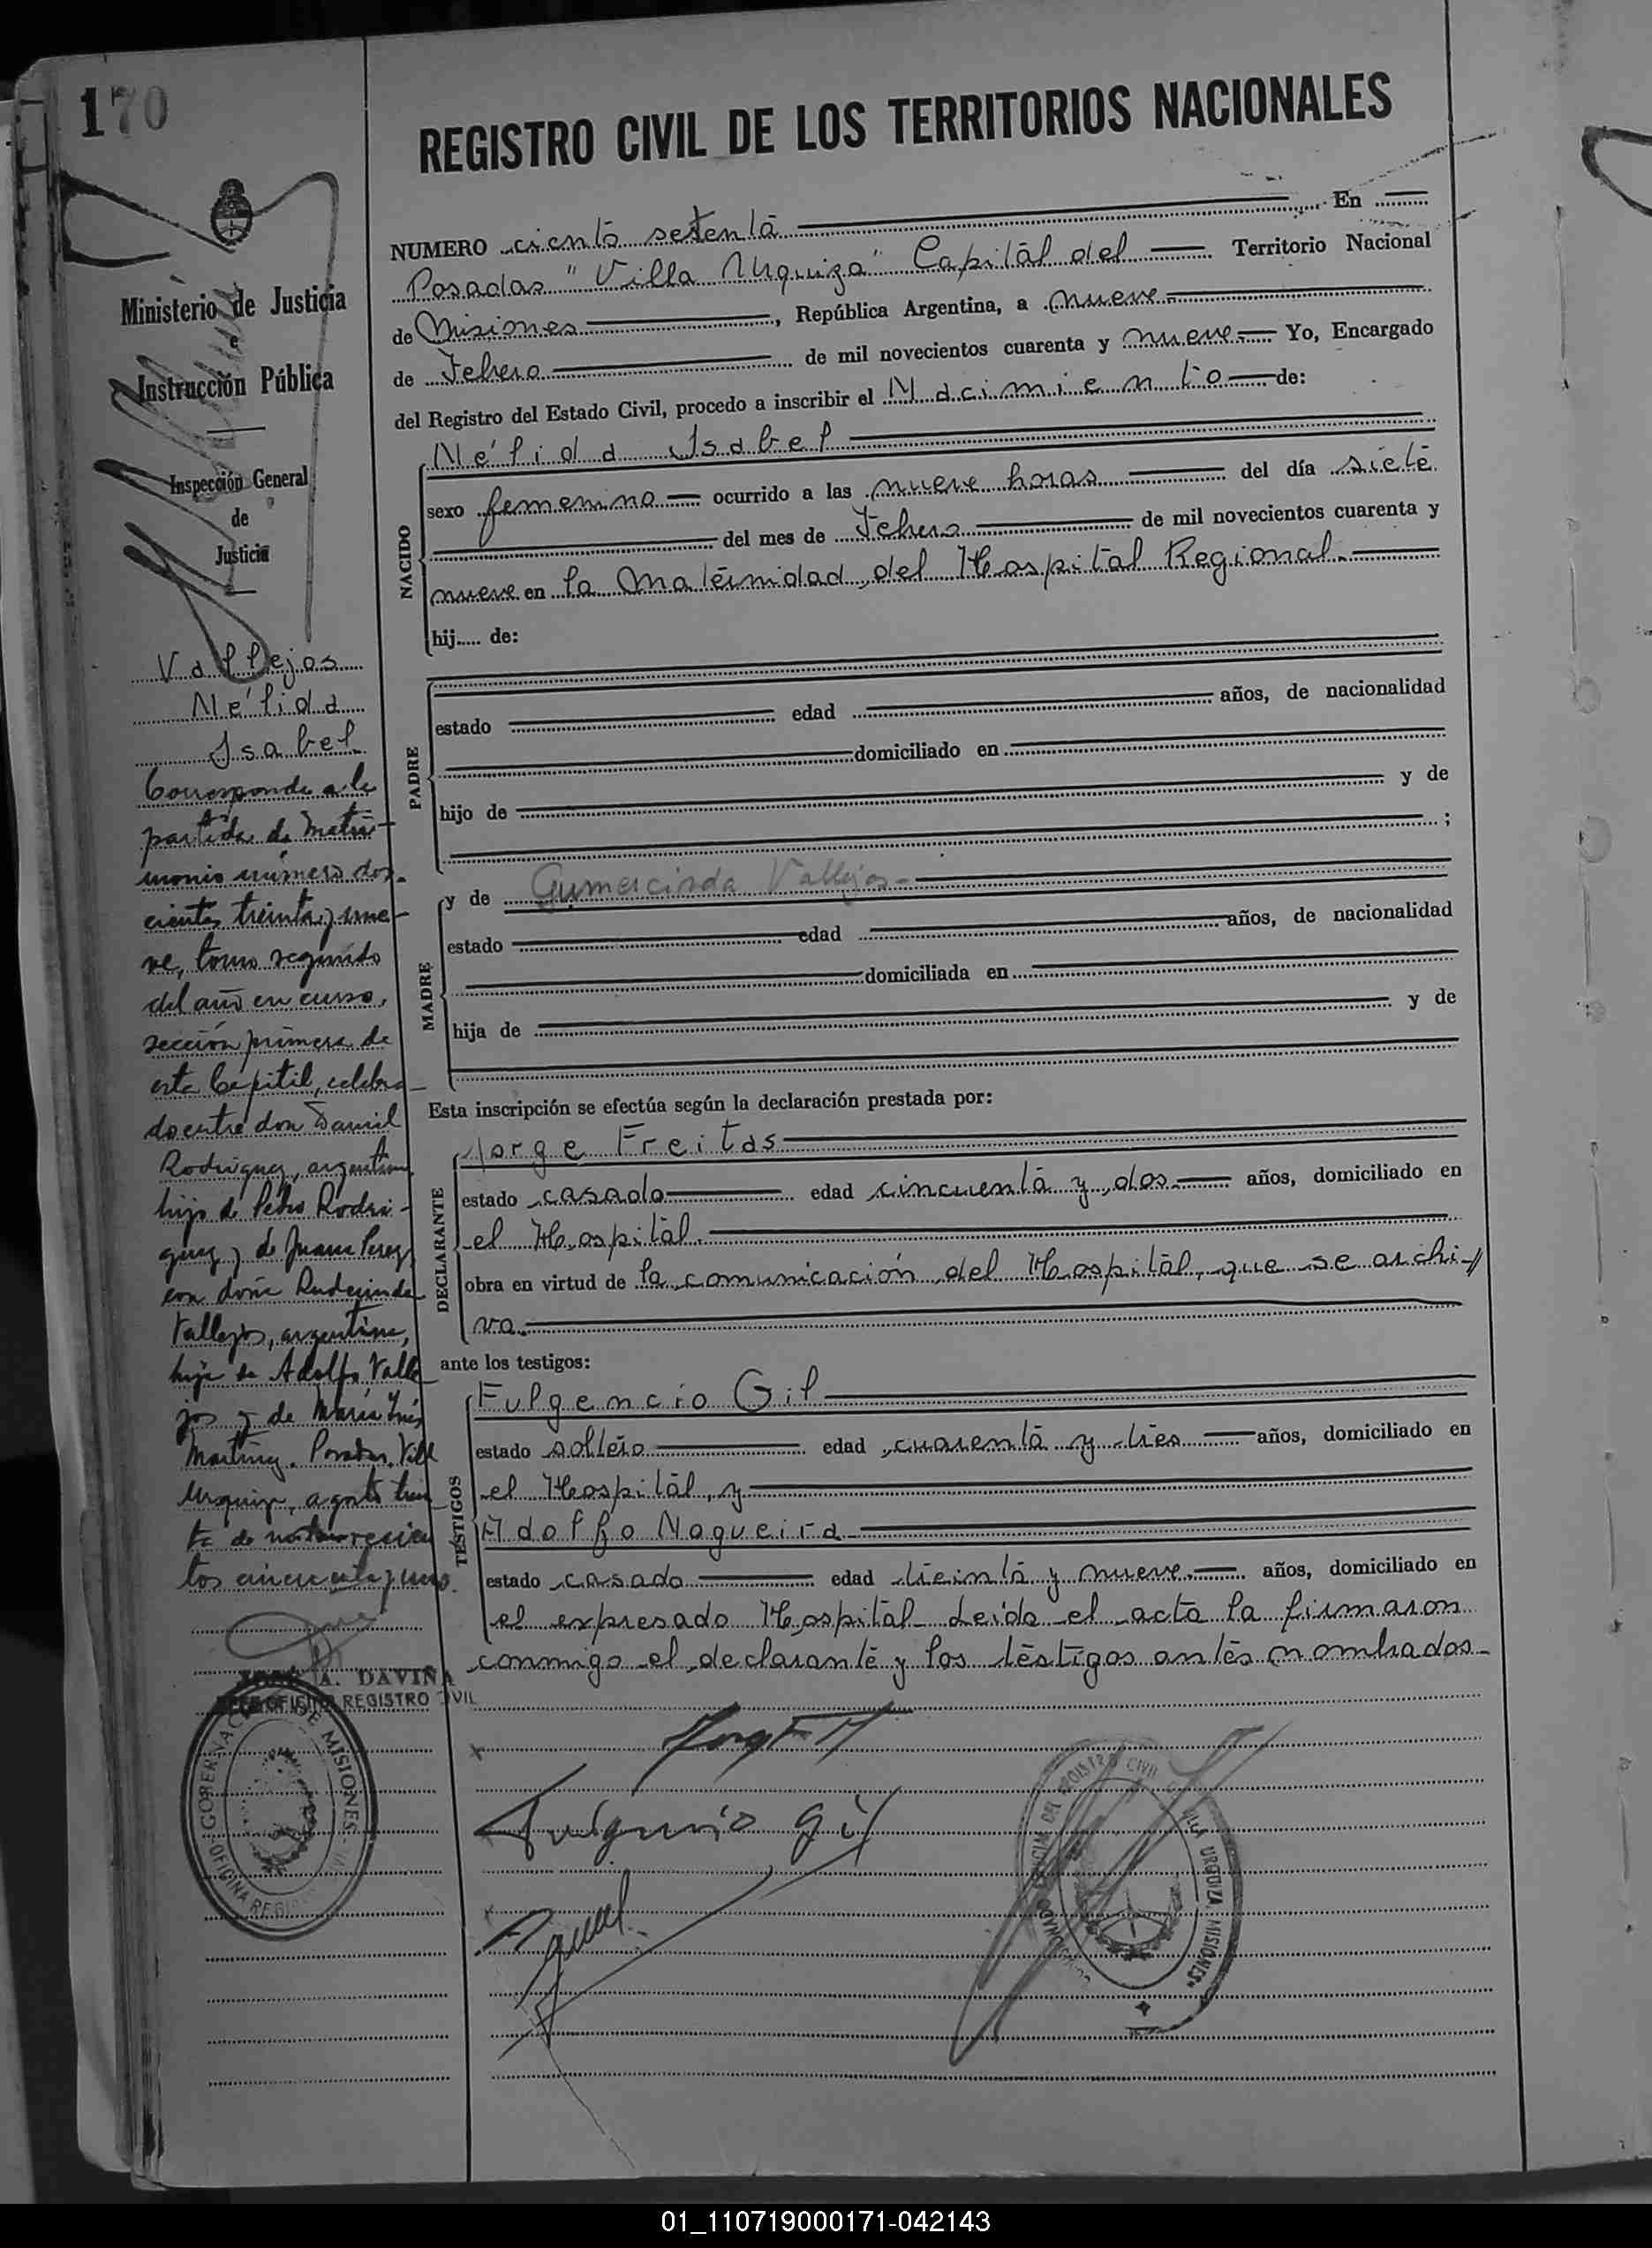 170
REGISTRO CIVIL DE LOS TERRITORIOS NACIONALES
Ministerio de Justicia
e
Instrucción Pública
Inspección General
de
Justicia
Vallejos
Nélida
Isabel
Corresponde a la
partida de matri-
monio número dos-
cientos treinta y nue-
ve, tomo segundo
del año en curso,
sección primera de
esta Capital, celebra-
do entre don Daniel
Rodriguez, argentino,
hijo de Pedro Rodri-
guez y de Juana Perez
con doña Rudecinda
Vallejos, argentina,
hija de Adolfo Valle
jos y de María Inés
Martinez. Posadas, Villa
Urquiza, agosto trein
ta de novecien
tos cincuenta y uno.
JOSÉ A. DAVIÑA
JEFE OFICINA REGISTRO CIVIL
GOBERNACION DE MISIONES
OFICINA REGISTRO
NUMERO ciento setenta En
Posadas "Villa Urquiza" Capital del Territorio Nacional
de Misiones, República Argentina, a nueve
de Febrero de mil novecientos cuarenta y nueve Yo, Encargado
del Registro del Estado Civil, procedo a inscribir el Nacimiento de:
NACIDO
Nélida Isabel
sexo femenino ocurrido a las nueve horas del día siete
del mes de Febrero de mil novecientos cuarenta y
nueve en la Maternidad, del Hospital Regional.
hij..... de:
PADRE
estado edad años, de nacionalidad
domiciliado en
hijo de y de
;
MADRE
y de Gumercinda Vallejos
estado edad años, de nacionalidad
domiciliada en
hija de y de
Esta inscripción se efectúa según la declaración prestada por:
DECLARANTE
Jorge Freitas
estado casado edad cincuenta y dos años, domiciliado en
el Hospital.
obra en virtud de la comunicación del Hospital, que se archi-//
va.
ante los testigos:
TESTIGOS
Fulgencio Gil
estado soltero edad cuarenta y tres años, domiciliado en
el Hospital, y
Adolfo Nogueira
estado casado edad treinta y nueve años, domiciliado en
el expresado Hospital. Leída el acta la firmaron
conmigo el declarante y los testigos antes nombrados.
Fulgencio Gil
REGISTRO CIVIL VILLA URQUIZA, MISIONES
01_110719000171-042143